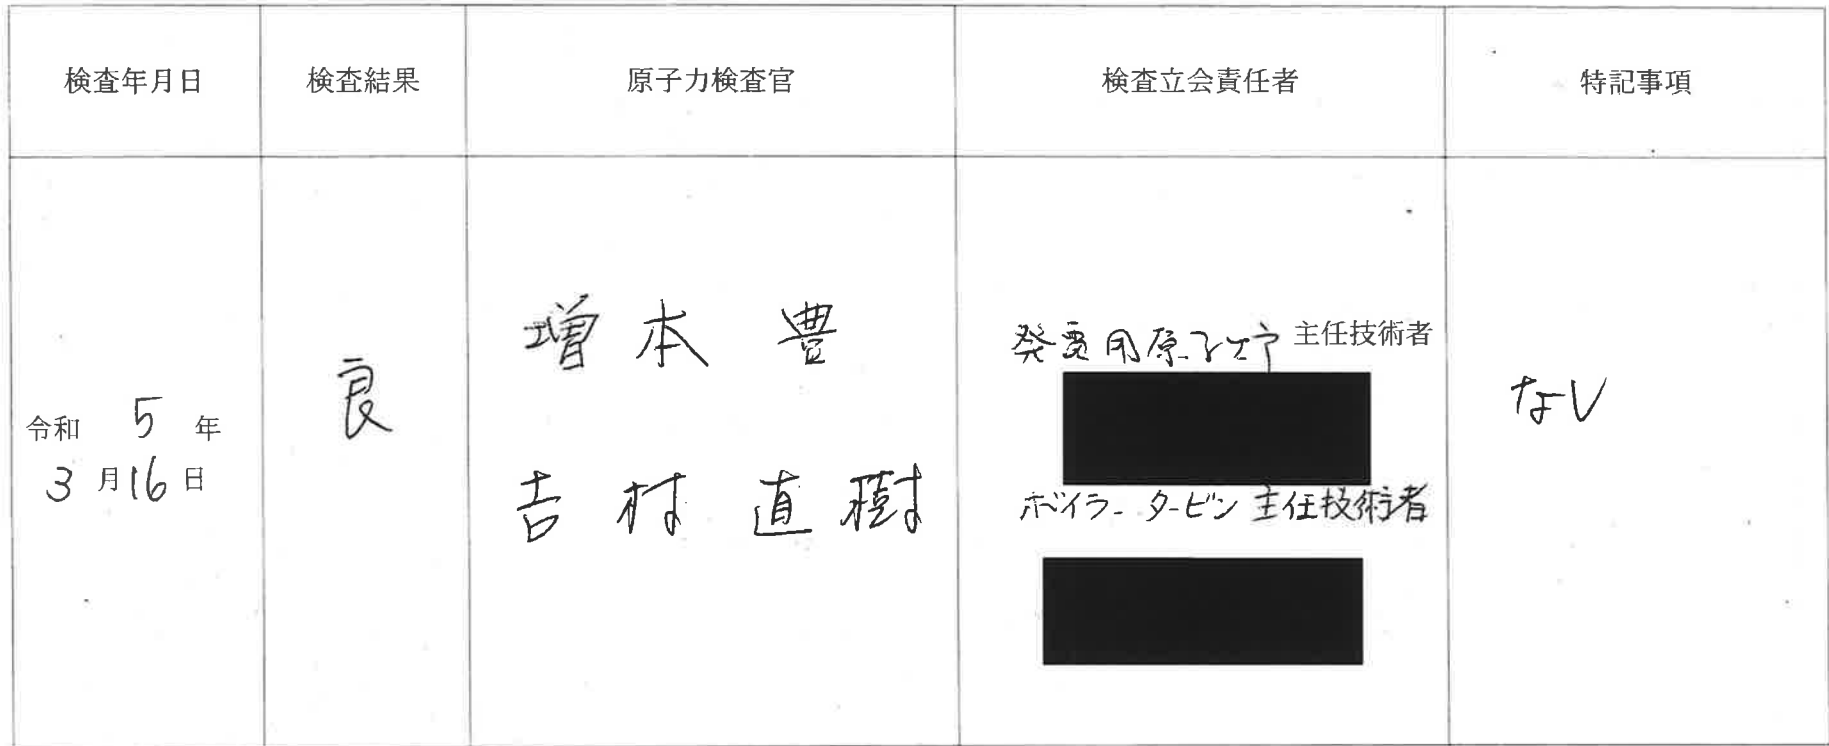 検査年月日 検査結果 原子力検査官 検査立会責任者 特記事項
令和 5 年
3 月 16 日
良
増本 豊
吉村 直樹
発電用原子炉 主任技術者
ボイラー タービン 主任技術者
なし